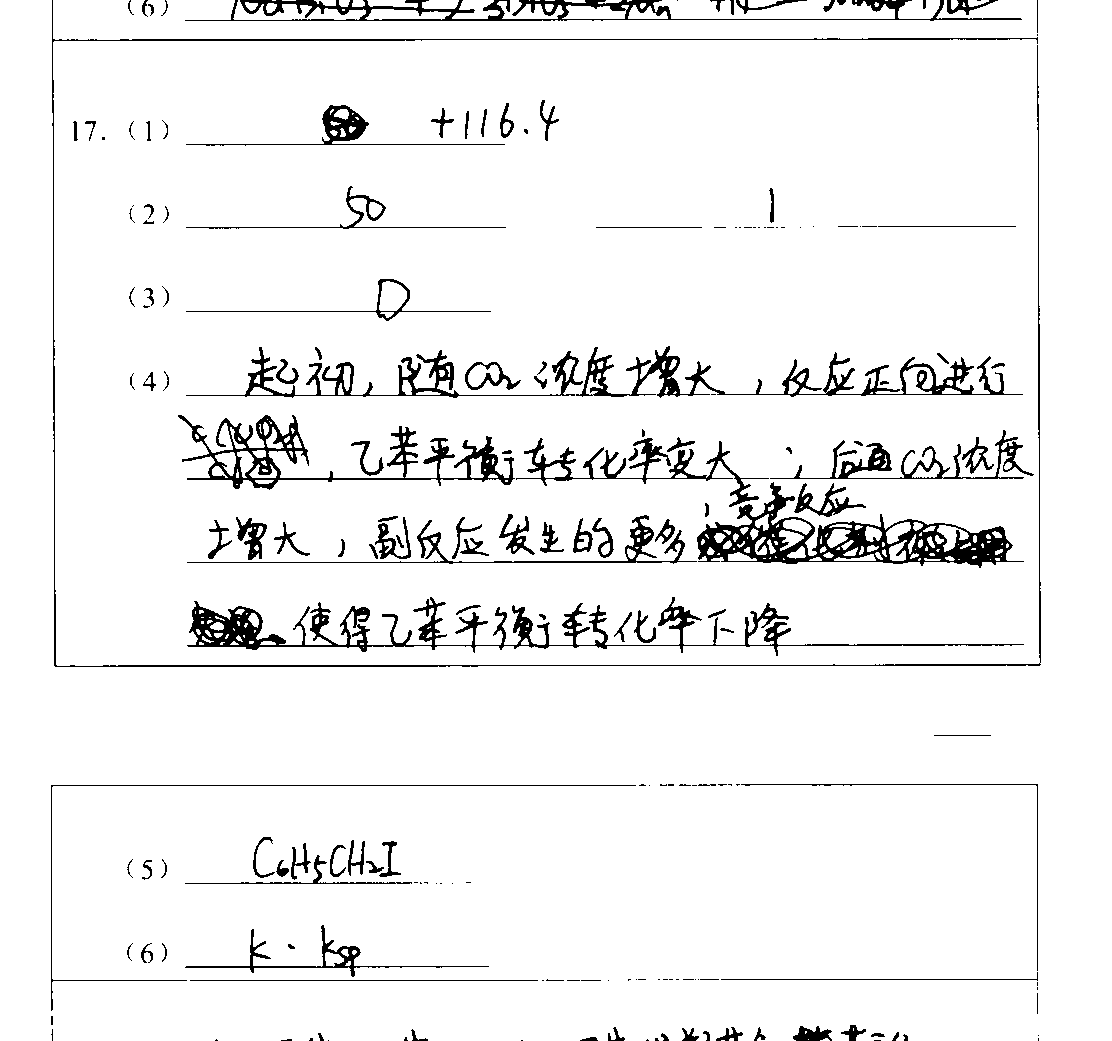 (6)
17. (1) +116.4
(2) 50 1
(3) D
(4) 起初，随CO₂浓度增大，反应正向进行
，乙苯平衡转化率变大；后通CO₂浓度
，竞争反应
增大，副反应发生的更多
使得乙苯平衡转化率下降
(5) C₆H₅CH₂I
(6) K · Ksp